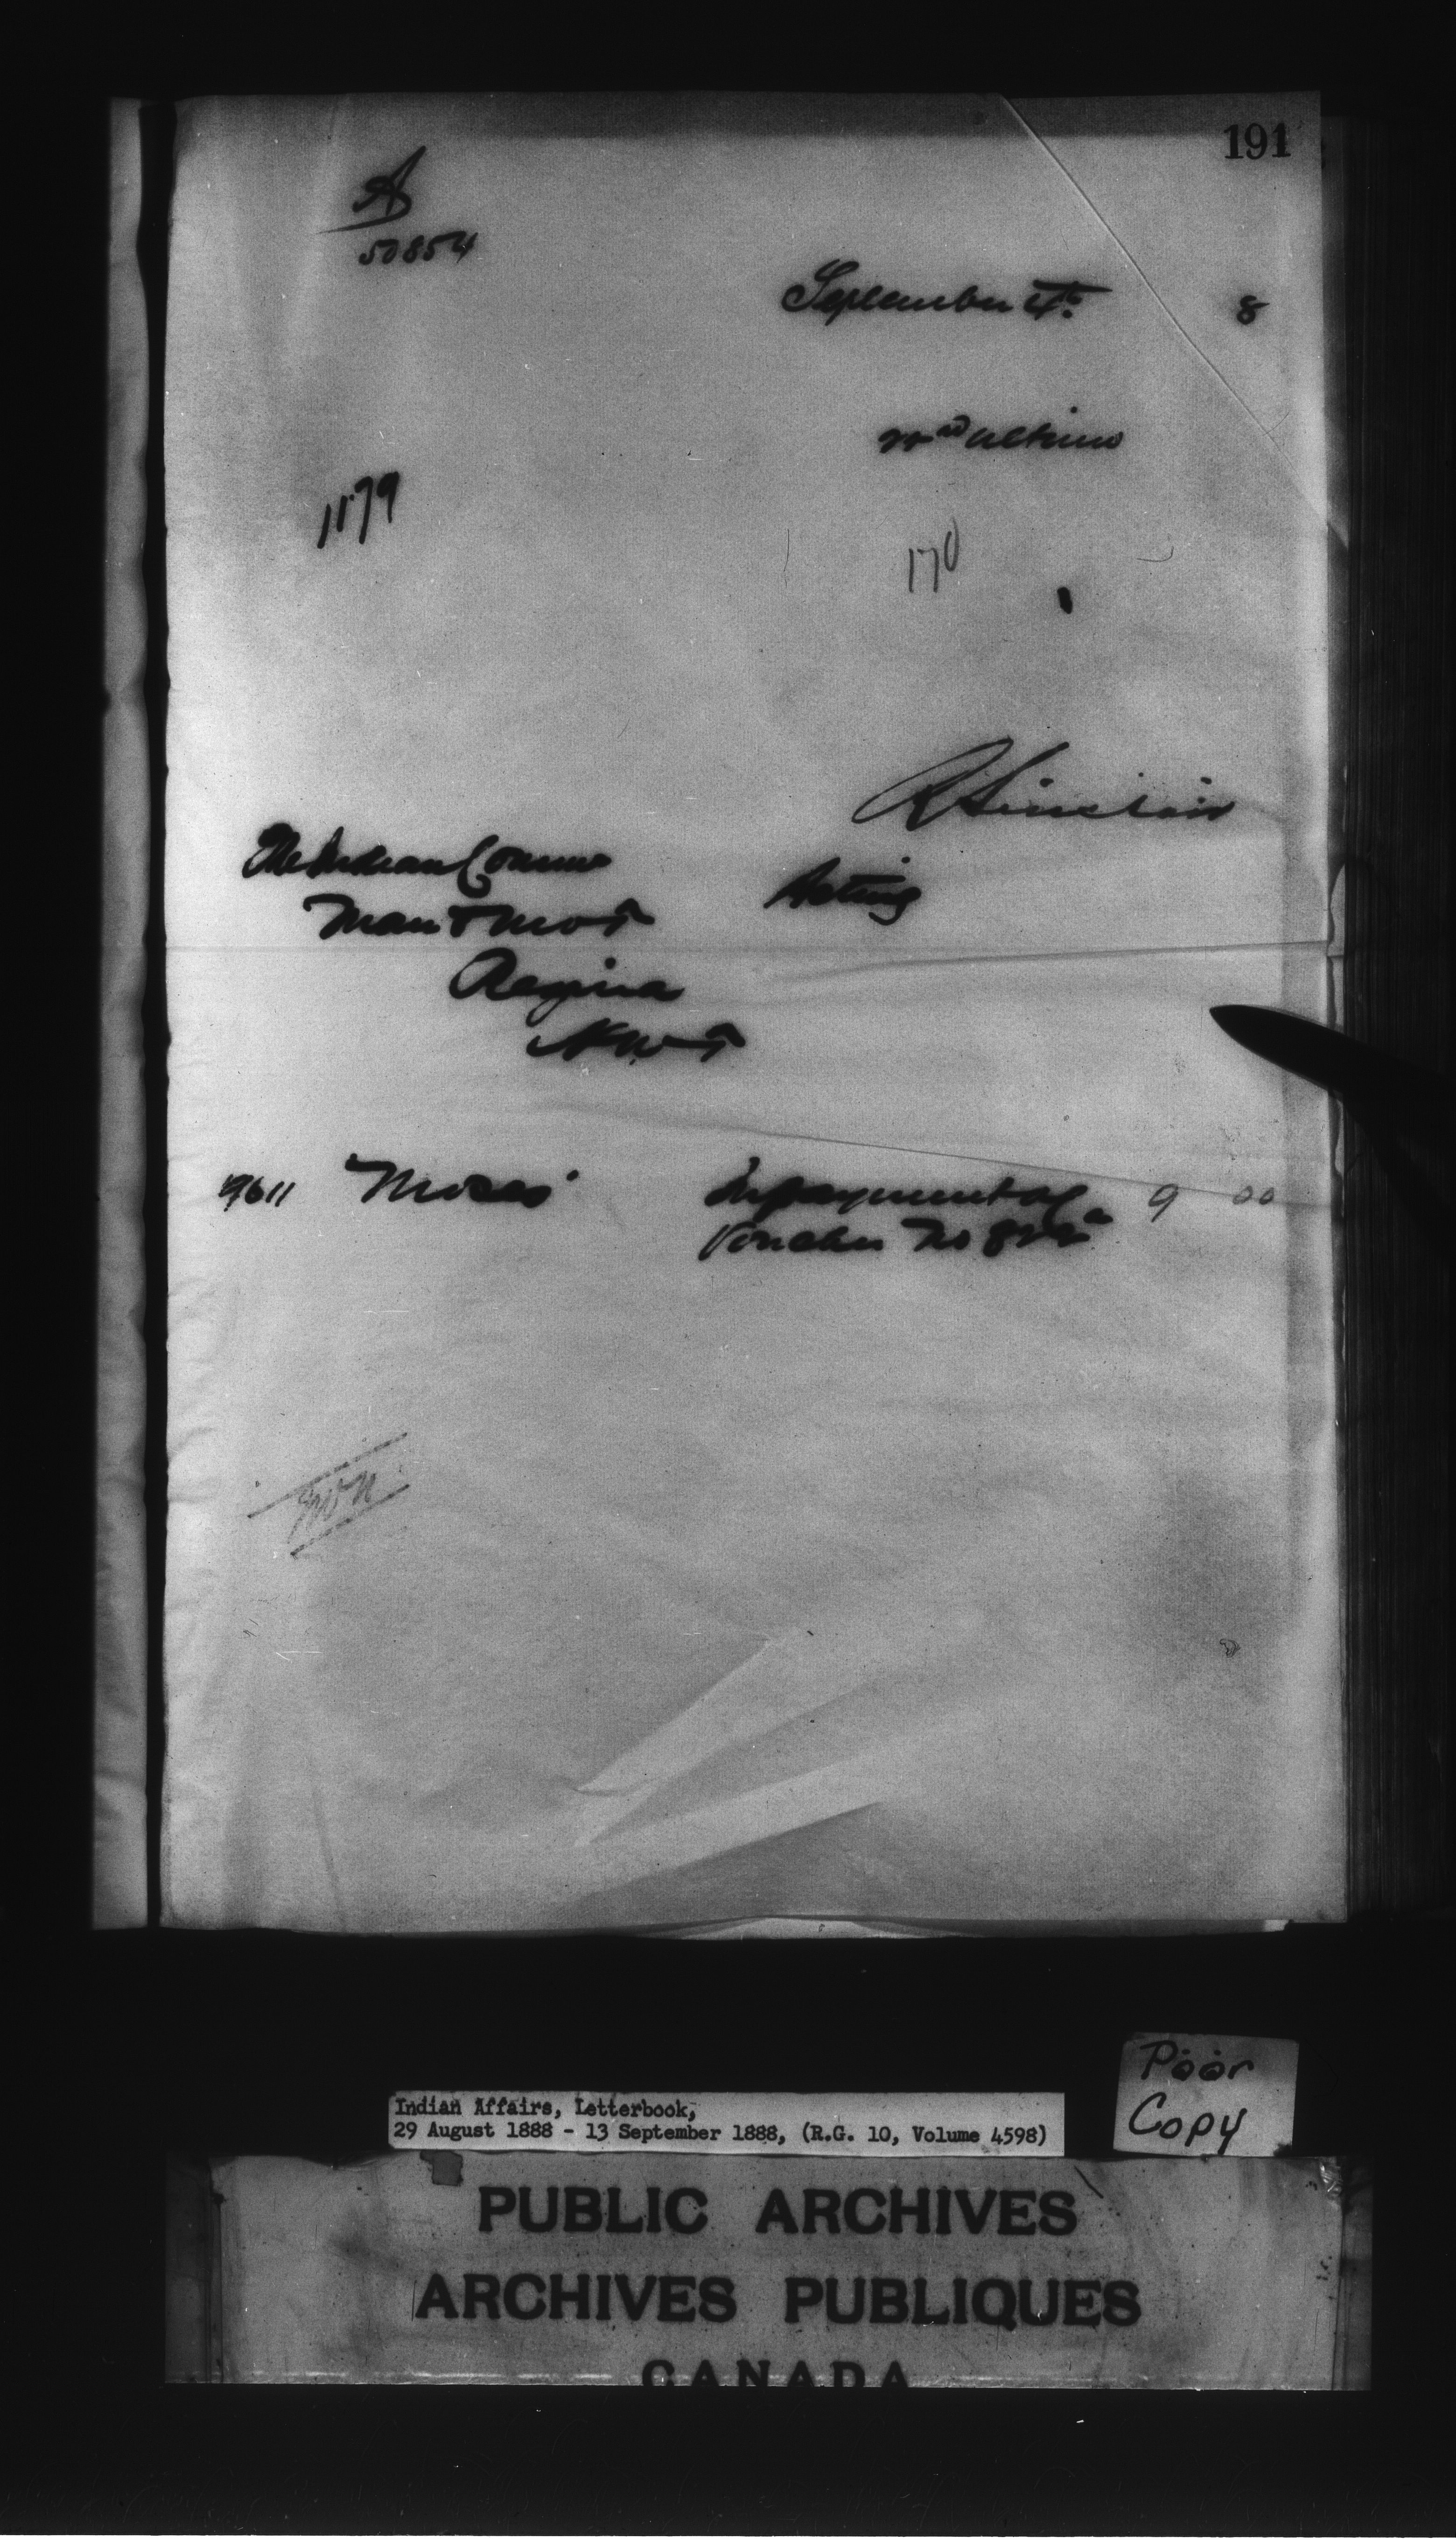 191
A
50854
September 4th 8
22nd ultimo
1179
170
R Sinclair
The Indian Comm
Acting
Man & N W T
Regina
N W T
9611 Moses In payment of 9 00
Voucher No
Indian Affairs, Letterbook,
29 August 1888 - 13 September 1888, (R.G. 10, Volume 4598)
Poor
Copy
PUBLIC ARCHIVES
ARCHIVES PUBLIQUES
CANADA